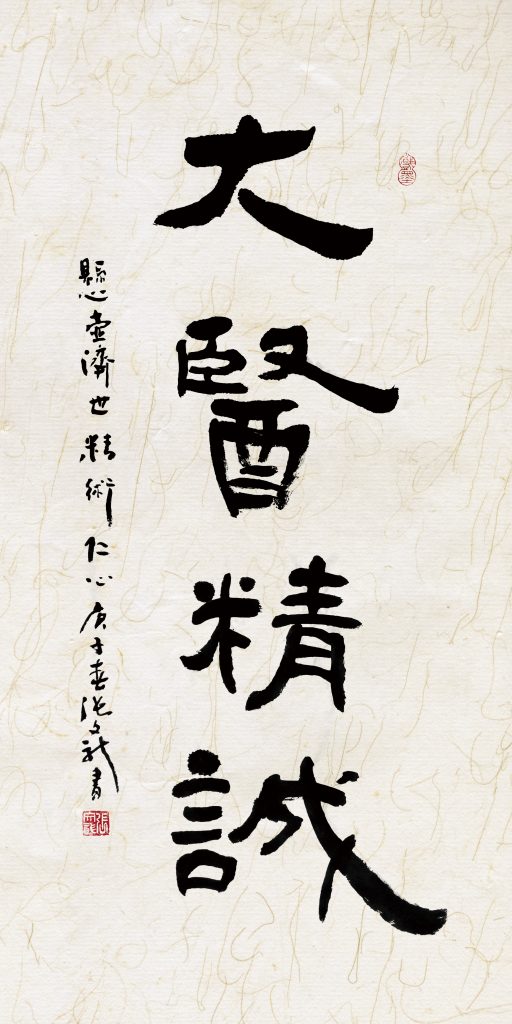 大醫精誠
懸壺濟世精術仁心庚子春張文新書